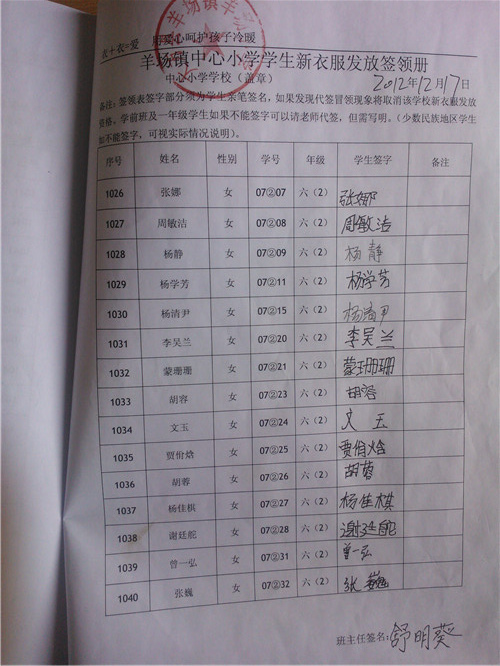 衣+衣=爱 用爱心呵护孩子冷暖
羊场镇中心小学学生新衣服发放签领册
中心小学学校（盖章） 2012年12月17日
备注：签领表签字部分须为学生亲笔签名，如果发现代签冒领现象将取消该学校新衣服发放
资格，学前班及一年级学生如果不能签字可以请老师代签，但需写明。（少数民族地区学生
如不能签字，可视实际情况说明）。
序号 姓名 性别 学号 年级 学生签字 备注
1026 张娜 女 07②07 六（2） 张娜
1027 周敏洁 女 07②08 六（2） 周敏洁
1028 杨静 女 07②09 六（2） 杨静
1029 杨学芳 女 07②11 六（2） 杨学芳
1030 杨清尹 女 07②15 六（2） 杨清尹
1031 李吴兰 女 07②20 六（2） 李吴兰
1032 蒙珊珊 女 07②21 六（2） 蒙珊珊
1033 胡容 女 07②23 六（2） 胡容
1034 文玉 女 07②24 六（2） 文玉
1035 贾佾焓 女 07②25 六（2） 贾佾焓
1036 胡蓉 女 07②26 六（2） 胡蓉
1037 杨佳棋 女 07②27 六（2） 杨佳棋
1038 谢廷舵 女 07②28 六（2） 谢廷舵
1039 曾一弘 女 07②31 六（2） 曾一弘
1040 张巍 女 07②32 六（2） 张巍
班主任签名：舒明葵